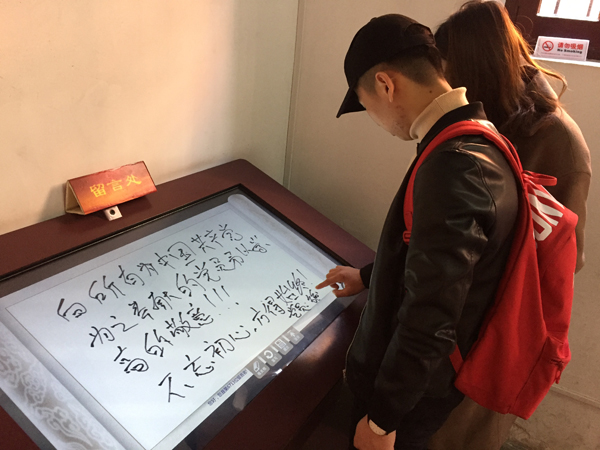 请勿吸烟
No Smoking
留言处
向所有为中国共产党
为之奉献的党员以崇
高的敬意!!!
不忘初心,方得始终!